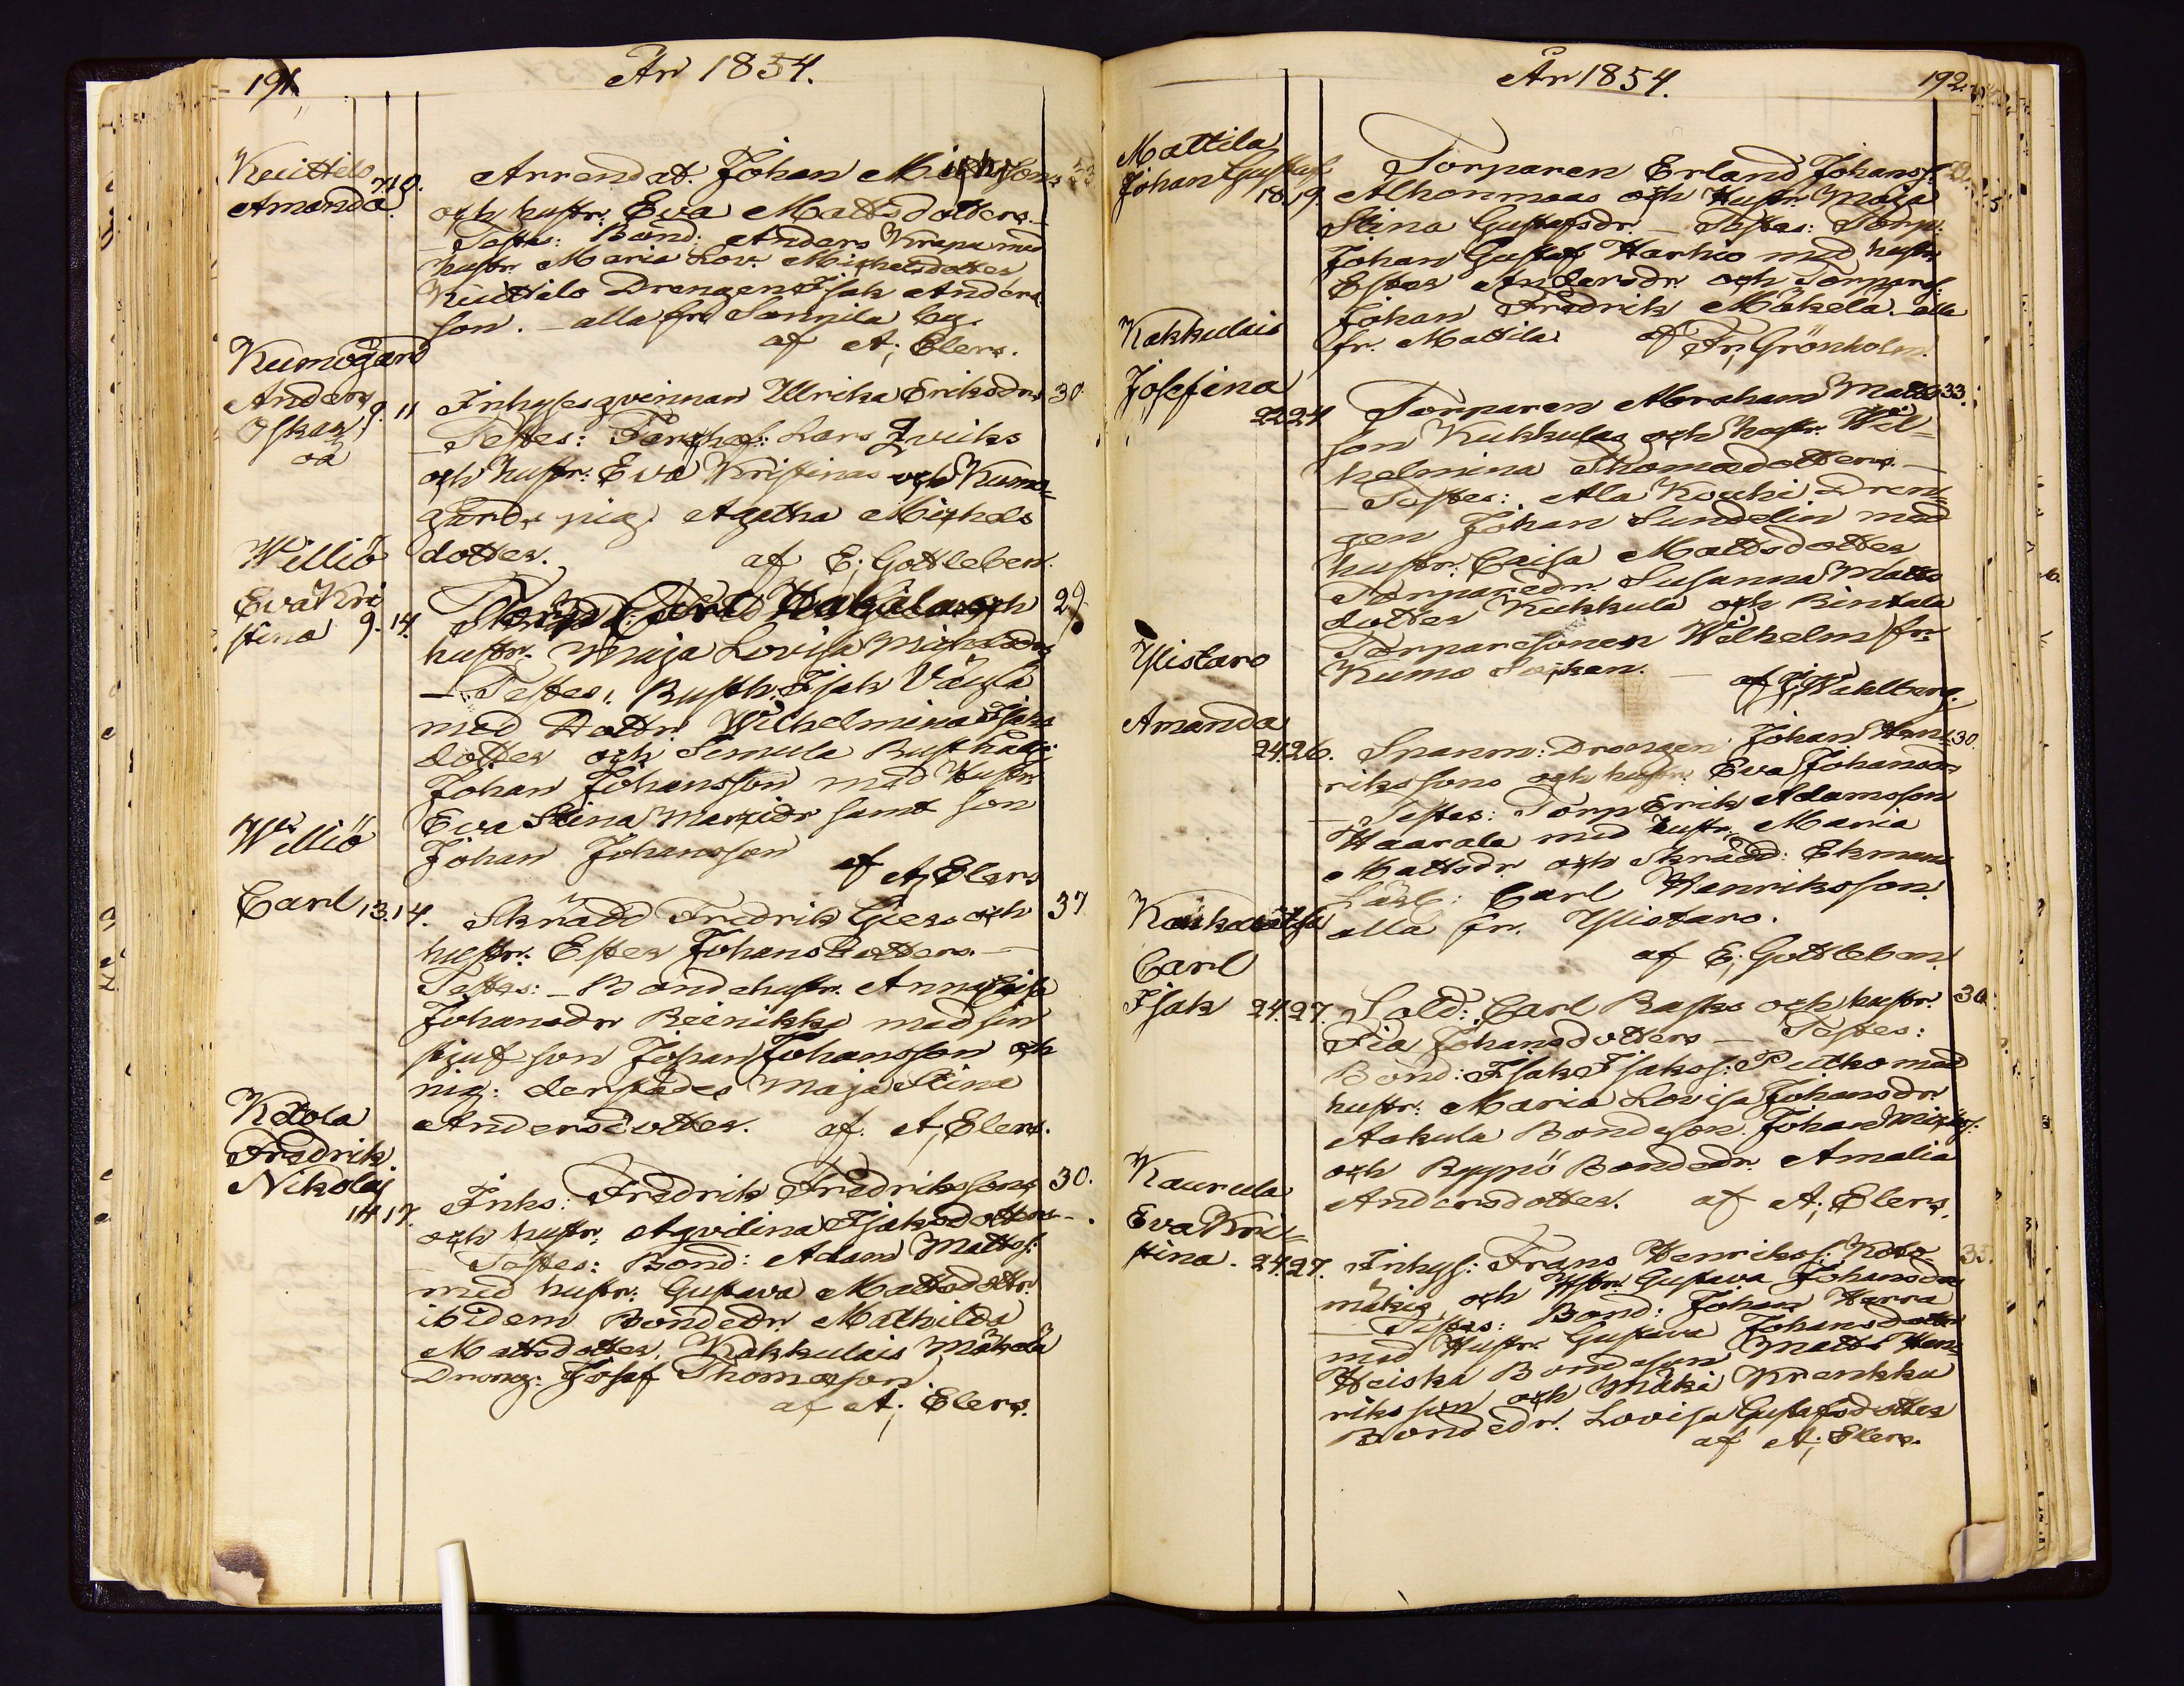 191.
År 1854.
Kuittilo
Amanda 7.10.
Arrendat. Johan Michelsons 23
och hustr. Eva Mattsdotters.
Testes: Bond: Anders Krapu med
hustr. Maria Lov. Michelsdotter
Kuittilo Drengen Isak Anders
son. - alla fr. Sonnila by.
af A; Elers.
Kumogård
Anders
Oskar 9. 11
oä
Inhysesqvinnan Ulrika Eriksdrs 30
Testes: Lars Qviks
och hustr: Eva Kristinas och Kumo=
gårds pig: Agatha Michels
dotter. af E; Gottleben.
Williö
Eva Kri
stina 9. 14.
och 29
hustr. Maja Lovisa Michelsdrs
- Testes: Rusth. Isak
med Dottr. Wilhelmina Isaks
dotter och Simula Rusthåll:
Johan Johansson med Hustr
Eva Stina samt son
Johan Johansson
af A; Elers
Williö
Carl 13.14.
Skrädd Fredrik Giers och 37
hustr: Ester Johansdotters. -
Testes: - Bondehustr. Anna Caisa
Johansdr Reinikka med sin
stjufson Johan Johansson och
pig: derstädes Maja Stina
Andersdotter. af. A; Elers.
Ketola
Fredrik
Nikolai
14 17.
Inhs: Fredrik Fredrikssons 30.
och hustr: Aqvilina Isaksdotters -
Testes: Bond: Adam Mattss:
med hustr: Gustava Mattsdottr.
ibidem Bondedr. Mathilda
Mattsdotter, Kakkulais Mäkelä
Dreng: Josef Thomasson
af A; Elers.
År 1854.
192.
Mattila
Johan Gustaf
18.19.
Torparen Erland Johanss:
Alhonmaas och Hustr. Maja
Stina Gustafsdr. - Testes: Torp:
Johan Gustaf Harhio med hustr.
Ester Andersdr. och Torpars:
Johan Fredrik Mäkelä. alla
fr. Mattila af Fr; Grönholm.
Kakkulais
Josefina
22 24
Torparen Abraham Matts 33.
son Kukkulas och hustr. Wil=
helmina Thomasdotters. -
- Testes: Ala Kouhi Dren=
gen Johan Sundelin med
hustr: Caisa Mattsdotter
Torparedr. Susanna Matts
dotter Kukkula och Rintala
Torparesonen Wilhelm fr.
Kumo Socken. - af Wahlberg.
Ylistaro
Amanda
24.26.
Spanm: Drengen Johan Hen= 30.
rikssons och hustr: Eva Johansdrs
- Testes: Torp Erik Adamsson
Haarala med hustr: Maria
Mattsdr. och Skrädd: Ekmans
Lärl: Carl Henriksson.
alla fr. Ylistaro.
af E; Gottleben.
Carl
Isak 24.27.
Sold: Carl Rasks och hustr. 30.
Fia Johansdotters - Testes:
Bond: Isak Isakss: Peltko med
hustr: Maria Lovisa Johansdr.
Askula Bondeson. Johan Michelss:
och Ryppö Bondedr. Amalia
Andersdotter. af A; Elers.
Kaurula
Eva Kri=
stina. 24.27.
Inhys: Frans Henrikss: Koto 35.
mäkis och Hstr. Gustava Johansdrs
- Testes: Bond: Johan Harra
med Hustr. Gustava Johansdotter
Heiska Bondeson Matts Hen=
riksson och Mäki Krenkku
Bondedr. Lovisa Gustafsdotter
af A; Elers.